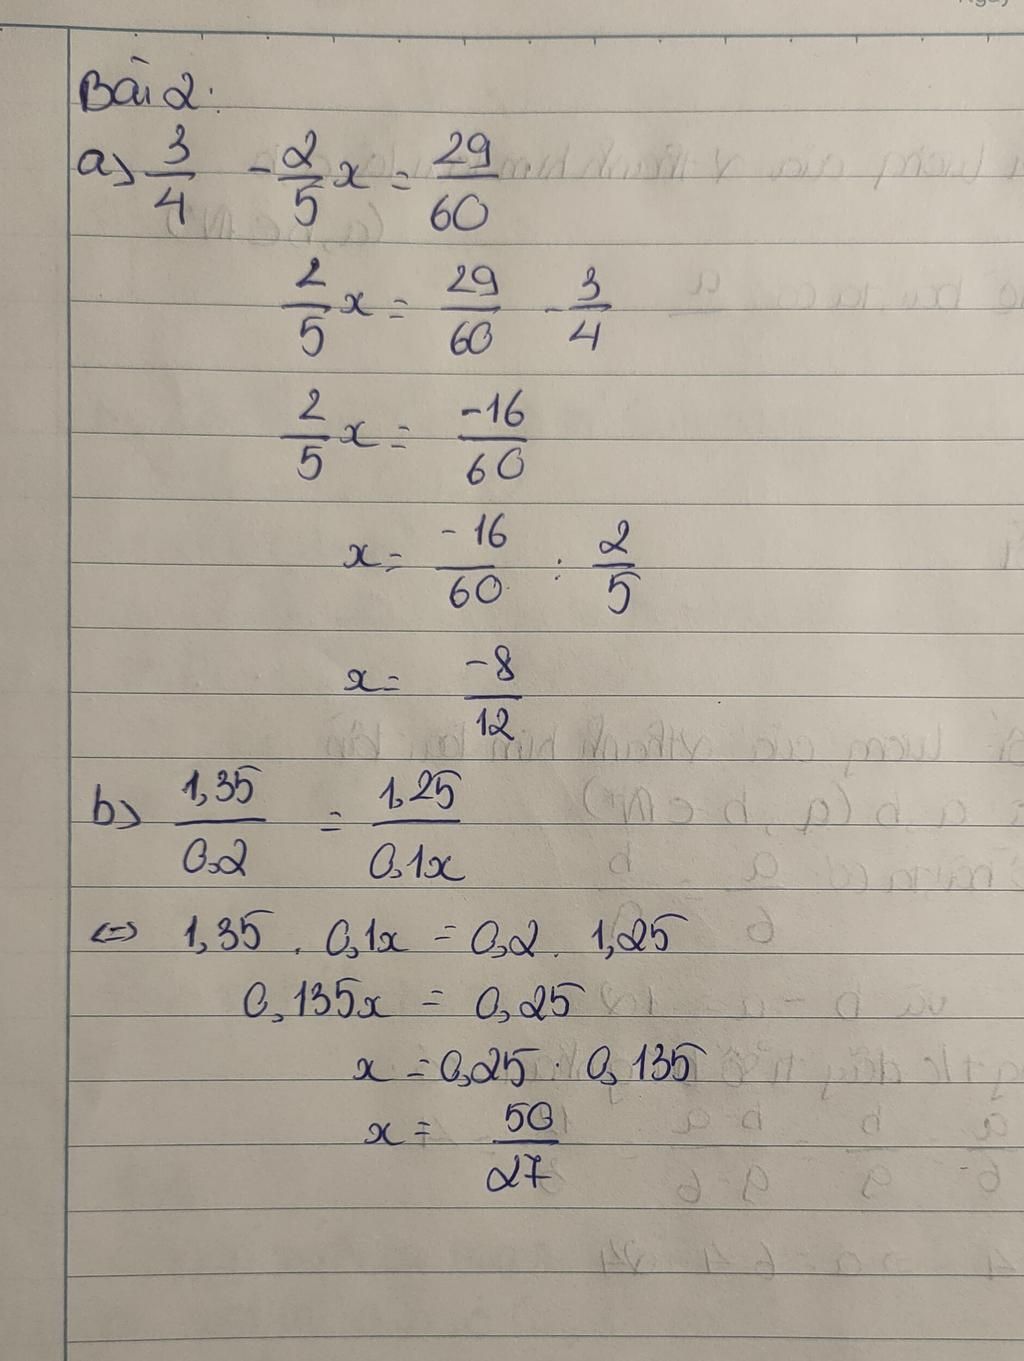 Bài 2:
a) 3/4 - 2/5 x = 29/60
2/5 x = 29/60 - 3/4
2/5 x = -16/60
x = -16/60 : 2/5
x = -8/12
b) 1,35/0,2 = 1,25/0,1x
⇔ 1,35 . 0,1x = 0,2 . 1,25
0,135x = 0,25
x = 0,25 : 0,135
x = 50/27